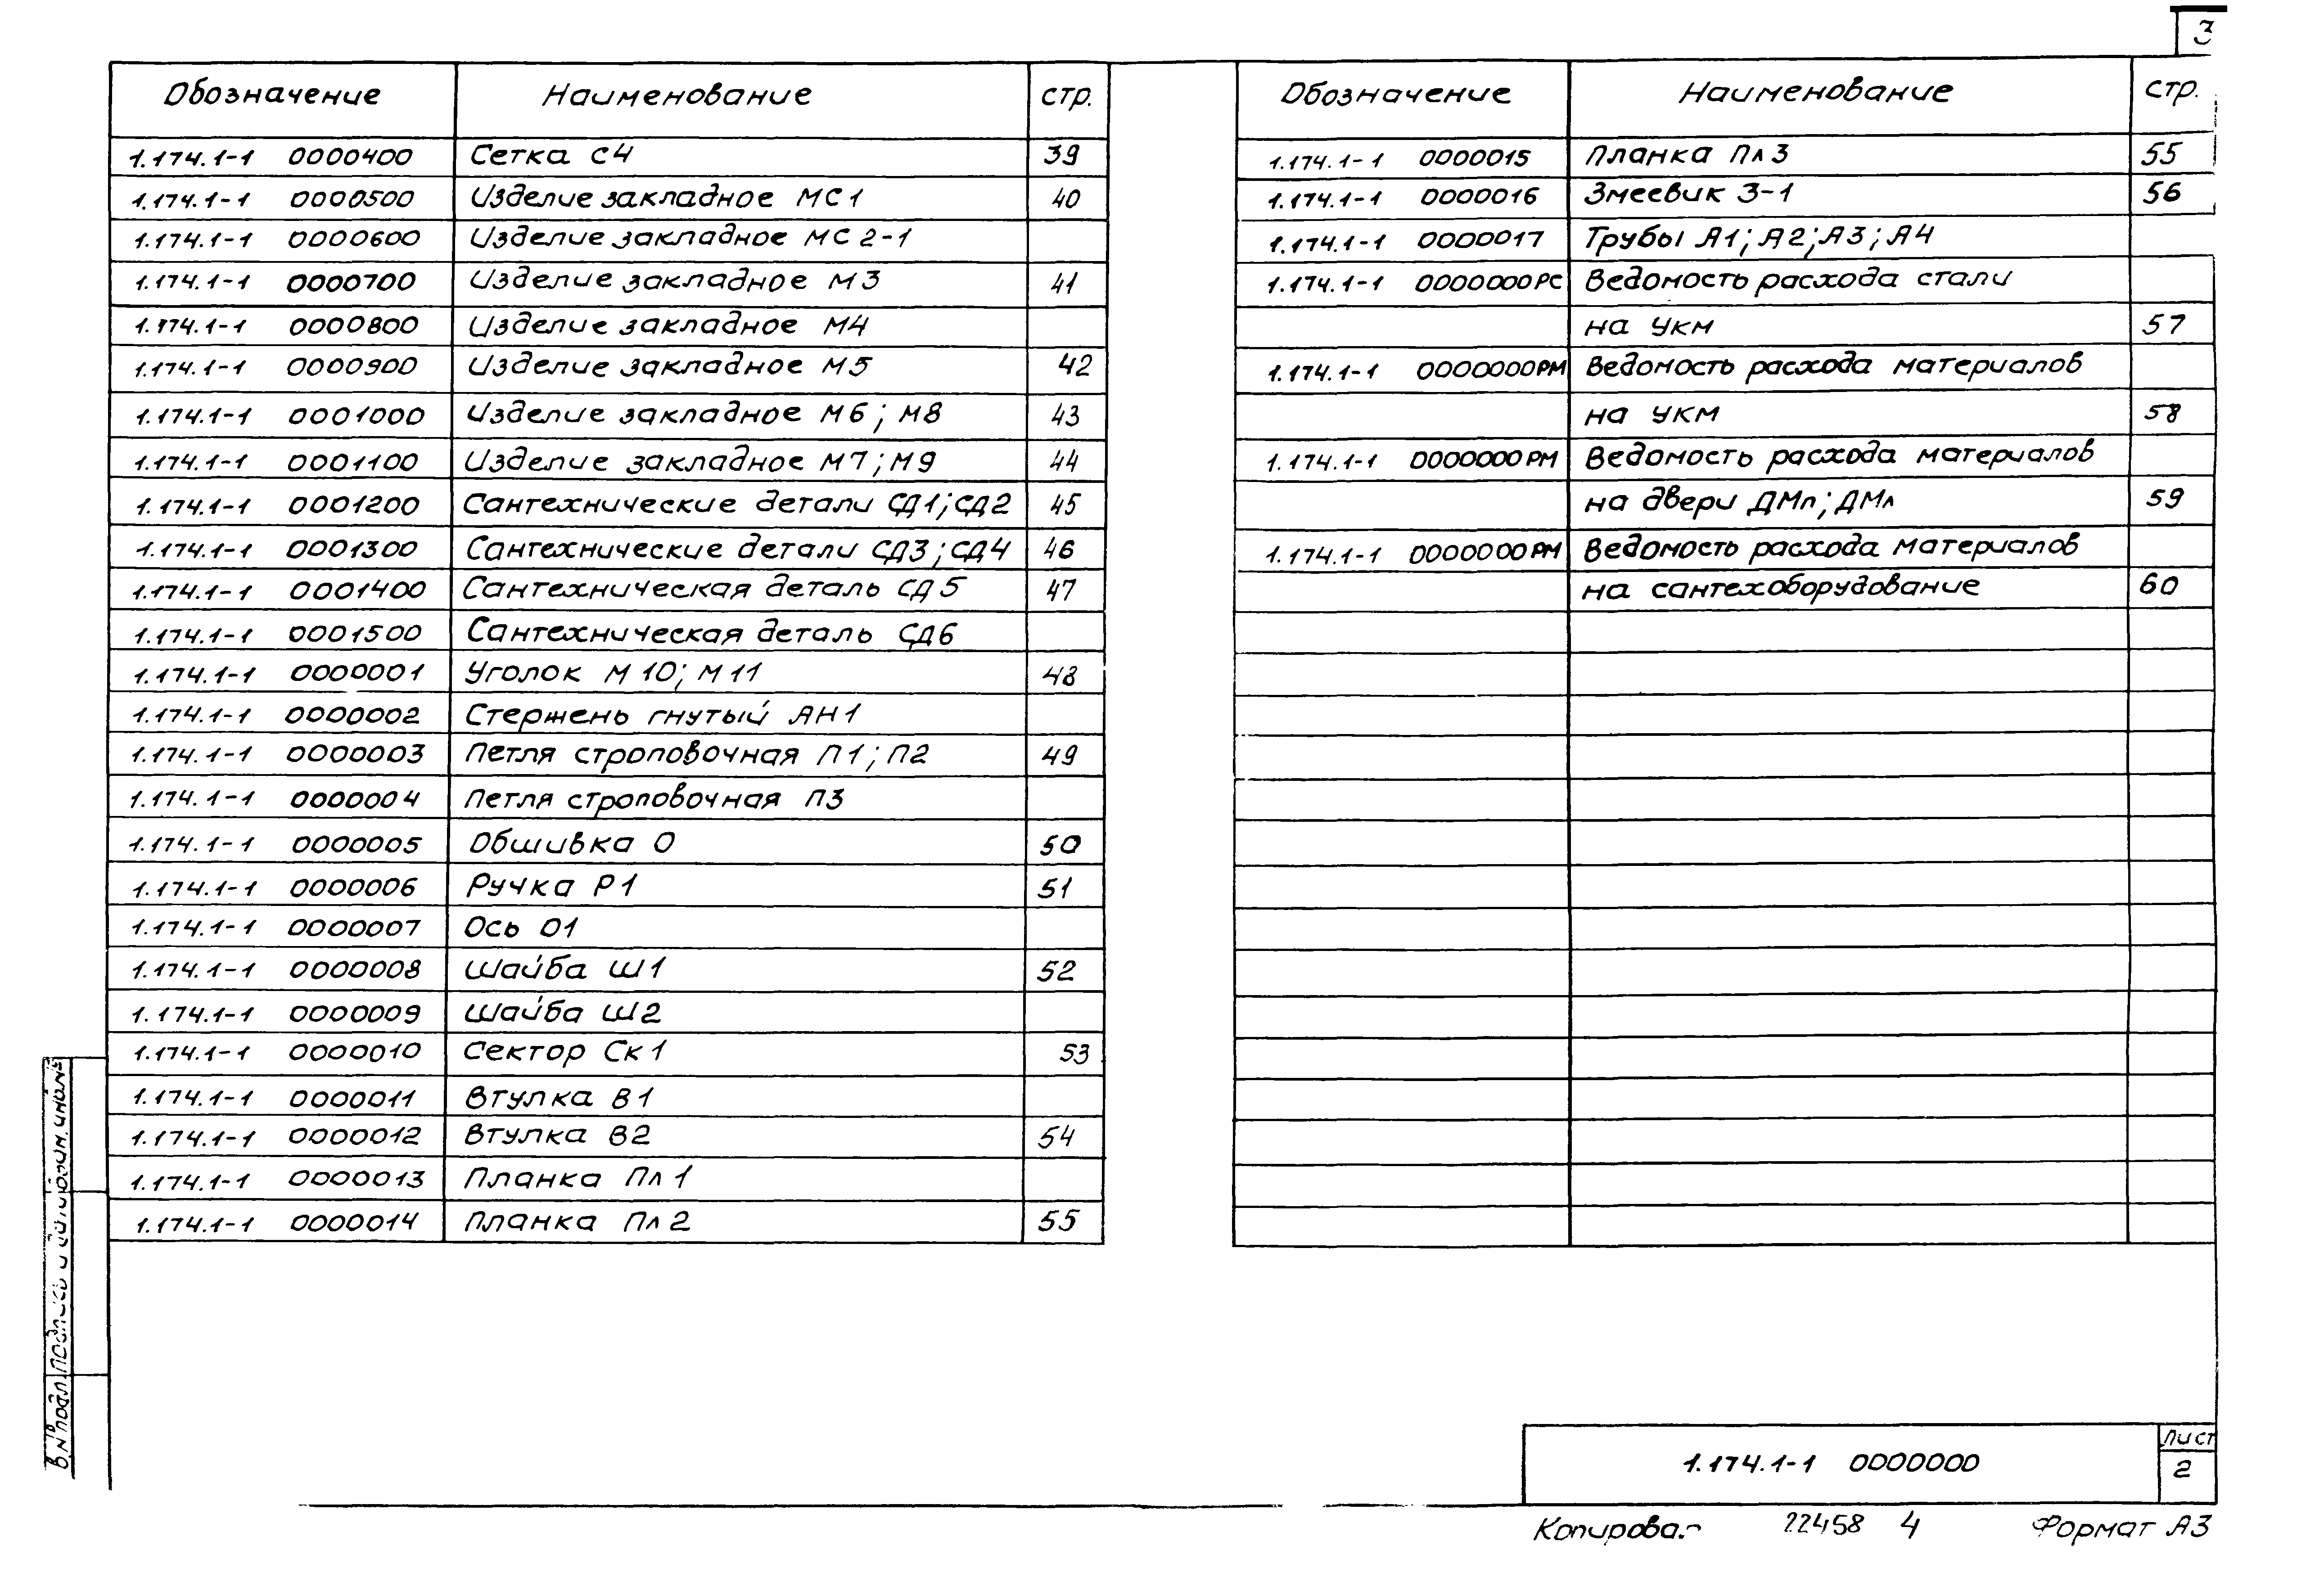 3
Обозначение Наименование стр.
1.174.1-1 0000400 Сетка С4 39
1.174.1-1 0000500 Изделие закладное МС1 40
1.174.1-1 0000600 Изделие закладное МС2-1
1.174.1-1 0000700 Изделие закладное М3 41
1.174.1-1 0000800 Изделие закладное М4
1.174.1-1 0000900 Изделие закладное М5 42
1.174.1-1 0001000 Изделие закладное М6; М8 43
1.174.1-1 0001100 Изделие закладное М7; М9 44
1.174.1-1 0001200 Сантехнические детали СД1; СД2 45
1.174.1-1 0001300 Сантехнические детали СД3; СД4 46
1.174.1-1 0001400 Сантехническая деталь СД5 47
1.174.1-1 0001500 Сантехническая деталь СД6
1.174.1-1 0000001 Уголок М10; М11 48
1.174.1-1 0000002 Стержень гнутый АН1
1.174.1-1 0000003 Петля строповочная П1; П2 49
1.174.1-1 0000004 Петля строповочная П3
1.174.1-1 0000005 Обшивка О 50
1.174.1-1 0000006 Ручка Р1 51
1.174.1-1 0000007 Ось О1
1.174.1-1 0000008 Шайба Ш1 52
1.174.1-1 0000009 Шайба Ш2
1.174.1-1 0000010 Сектор Ск1 53
1.174.1-1 0000011 Втулка В1
1.174.1-1 0000012 Втулка В2 54
1.174.1-1 0000013 Планка Пл1
1.174.1-1 0000014 Планка Пл2 55
Обозначение Наименование стр.
1.174.1-1 0000015 Планка Пл3 55
1.174.1-1 0000016 Змеевик З-1 56
1.174.1-1 0000017 Трубы А1; А2; А3; А4
1.174.1-1 0000000РС Ведомость расхода стали
на УКМ 57
1.174.1-1 0000000РМ Ведомость расхода материалов
на УКМ 58
1.174.1-1 0000000РМ Ведомость расхода материалов
на двери ДМп; ДМл 59
1.174.1-1 0000000РМ Ведомость расхода материалов
на сантехоборудование 60
1.174.1-1 0000000
Лист
2
22458 4 Формат А3